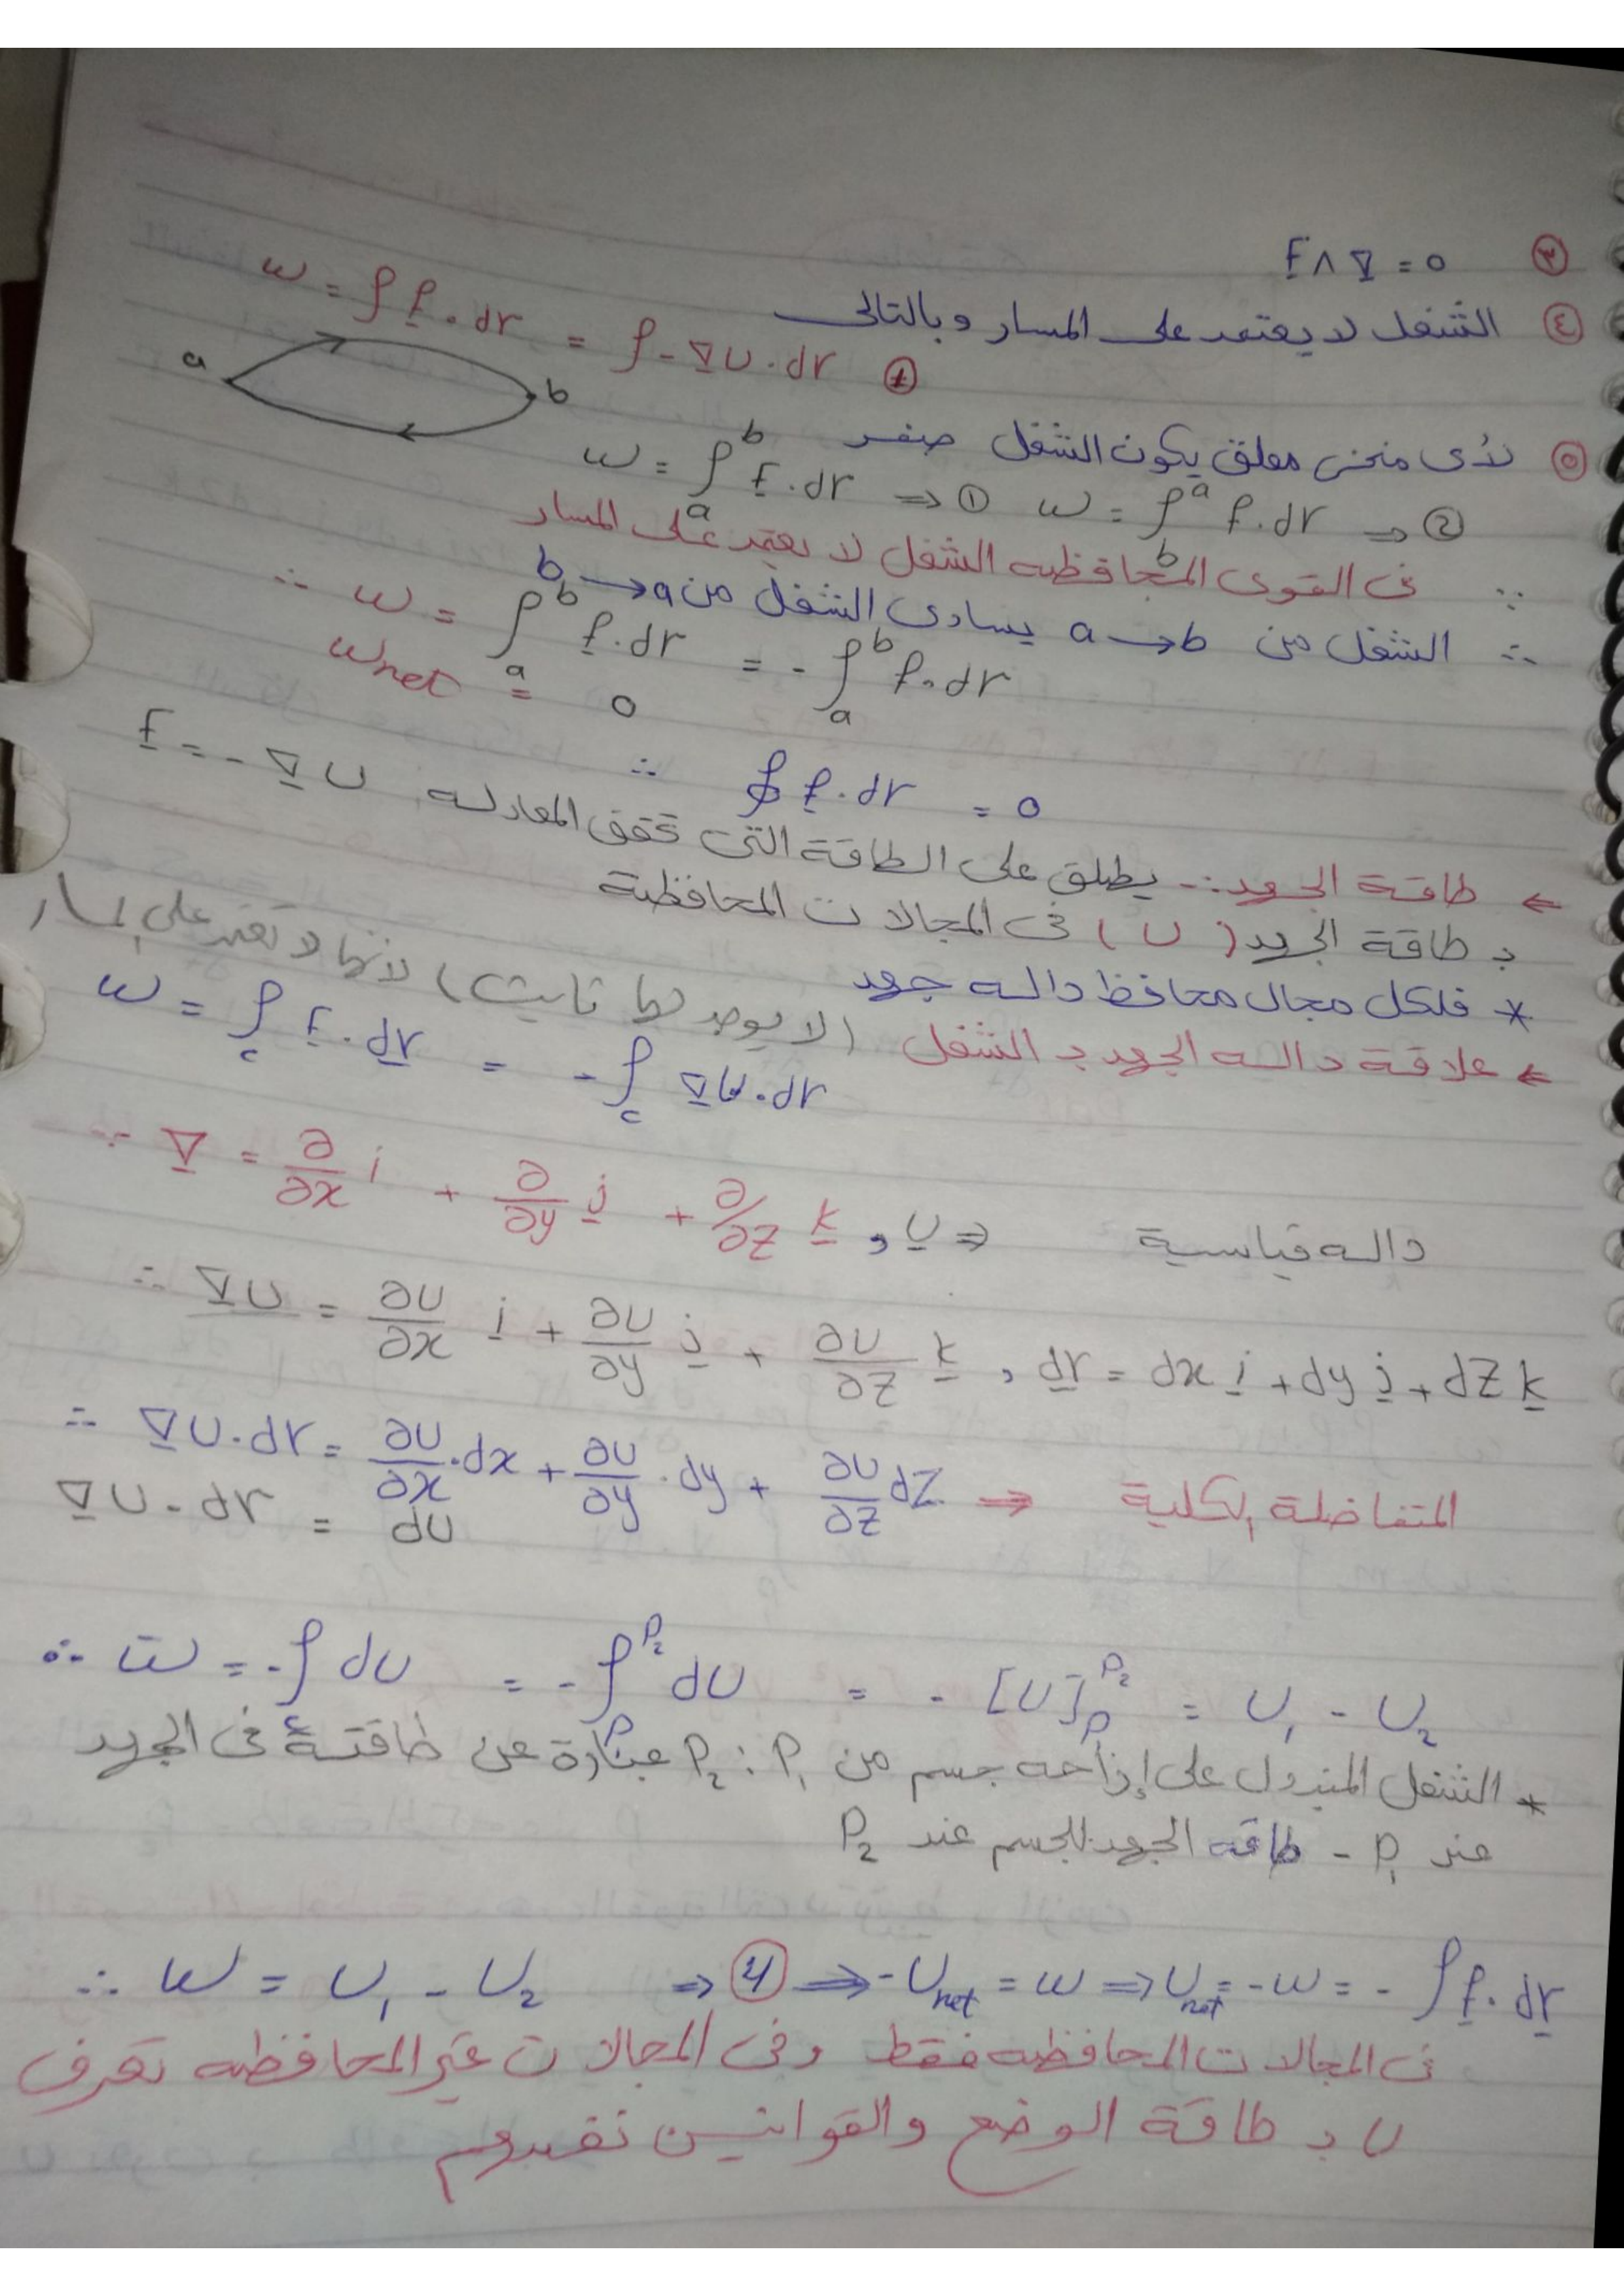 ③ F ∧ ∇ = 0
④ الشغل لا يعتمد على المسار وبالتالى
w = ∫ F . dr = ∫ - ∇U . dr ①
a b
⑤ لأى منحنى مغلق يكون الشغل صفر
w = ∫ₐᵇ F . dr ⇒ ① w = ∫_bᵃ F . dr ⇒ ②
∵ فى القوى المحافظه الشغل لا يعتمد على المسار
∴ الشغل من a → b يساوى الشغل من a → b
∴ w = ∫ₐᵇ F . dr = - ∫ₐᵇ F . dr
w net = 0
∴ ∮ F . dr = 0
⇐ طاقة الجهد :- يطلق على الطاقة التى تحقق المعادله F = - ∇U
بـ طاقة الجهد (U) فى المجالات المحافظية
* فلكل مجال محافظ داله جهد
⇐ علاقة داله الجهد بـ الشغل (لا يوجد لها ثابت) لأنها لا تعتمد على المسار
w = ∫_c F . dr = - ∫_c ∇U . dr
∵ ∇ = ∂/∂x i + ∂/∂y j + ∂/∂z k , U ⇒ داله قياسية
∴ ∇U = ∂U/∂x i + ∂U/∂y j + ∂U/∂z k , dr = dx i + dy j + dz k
∴ ∇U . dr = ∂U/∂x . dx + ∂U/∂y . dy + ∂U/∂z dz ⇒ المتفاضلة الكلية
∇U . dr = dU
∴ w = - ∫_c dU = - ∫_P₁^P₂ dU = - [U]_P₁^P₂ = U₁ - U₂
* الشغل المبذول على إزاحه جسم من P₁ : P₂ عبارة عن طاقتة فى الجهد
عند P₁ - طاقه الجهد للجسم عند P₂
∴ W = U₁ - U₂ ⇒ ④ ⇒ - U net = w ⇒ U net = - w = - ∫ F . dr
فى المجالات المحافظه فقط وفى المجالات غير المحافظه تعرف
U بـ طاقة الوضع والقوانين نفسهم